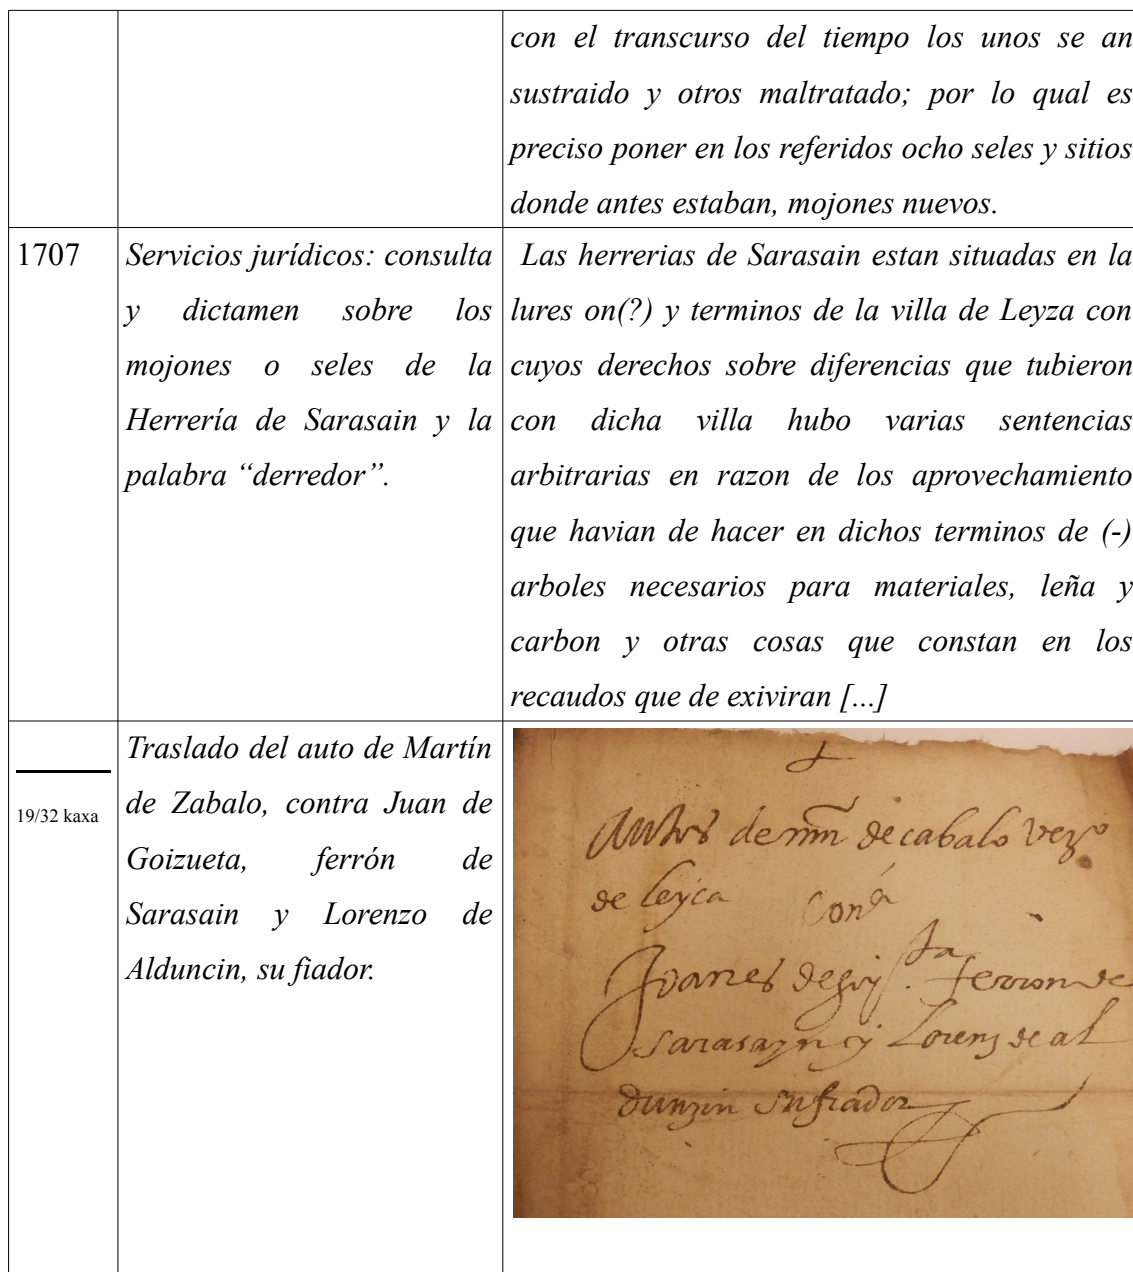 con el transcurso del tiempo los unos se an
sustraido y otros maltratado; por lo qual es
preciso poner en los referidos ocho seles y sitios
donde antes estaban, mojones nuevos.
1707
Servicios jurídicos: consulta
y dictamen sobre los
mojones o seles de la
Herrería de Sarasain y la
palabra “derredor”.
Las herrerias de Sarasain estan situadas en la
lures on(?) y terminos de la villa de Leyza con
cuyos derechos sobre diferencias que tubieron
con dicha villa hubo varias sentencias
arbitrarias en razon de los aprovechamiento
que havian de hacer en dichos terminos de (-)
arboles necesarios para materiales, leña y
carbon y otras cosas que constan en los
recaudos que de exiviran [...]
19/32 kaxa
Traslado del auto de Martín
de Zabalo, contra Juan de
Goizueta, ferrón de
Sarasain y Lorenzo de
Alduncin, su fiador.
Autos de mm de cabalo vezo
de leyca conª
Joanes de goyta ferron de
sarasayn y Lorenz de al
dunzin su fiador